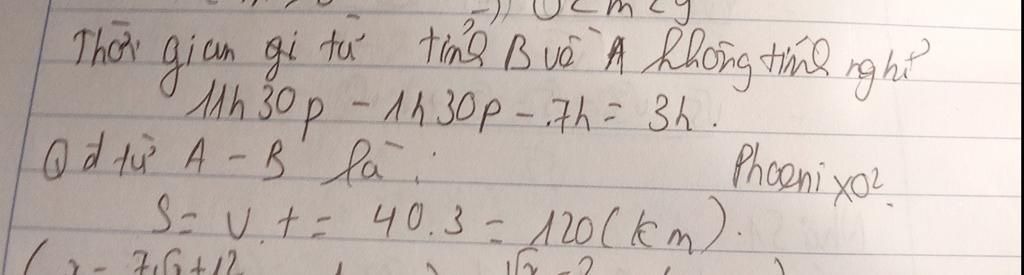 =)) 0 < m < 9
Thời gian gi từ tỉnh B về A không tính nghỉ
11h30p - 1h30p - 7h = 3h.
Qđ từ A - B là:
Phoenix02.
S = v.t = 40.3 = 120 (km).